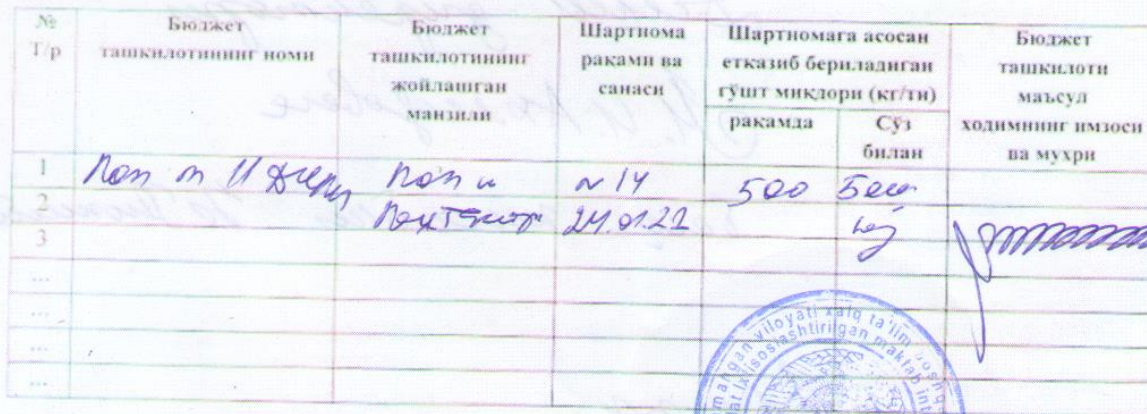 № Т/р
Бюджет ташкилотининг номи
Бюджет ташкилотининг жойлашган манзили
Шартнома рақами ва санаси
Шартномага асосан етказиб бериладиган гўшт миқдори (кг/тн)
рақамда
Сўз билан
Бюджет ташкилоти маъсул ходимнинг имзоси ва мухри
1 Поп Поп № 14 500 Беш
2 Пахтакор 24.01.22 юз
3
...
...
...
...
viloyati xalq ta'lim
ixtisoslashtirilgan maktab